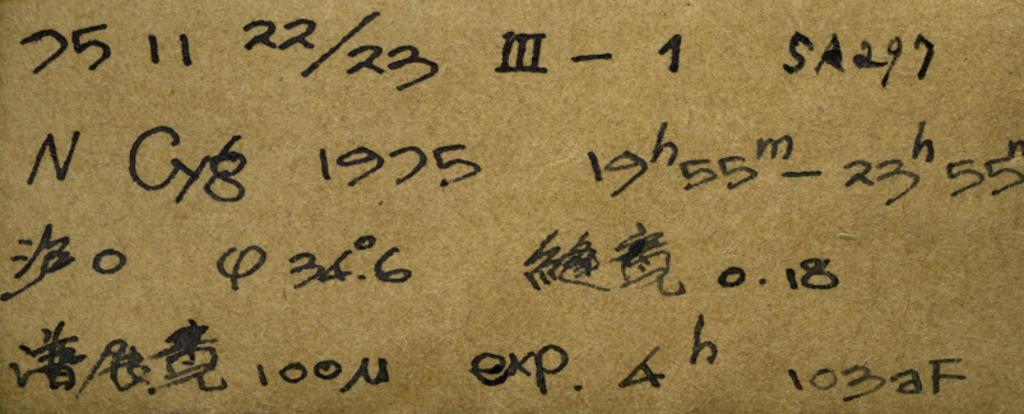 75 11 22/23 III - 1 SA297
N Cyg 1975 19h55m - 23h55m
沪0 φ 34°.6 缝宽 0.18
谱展宽 100μ exp. 4h 103aF